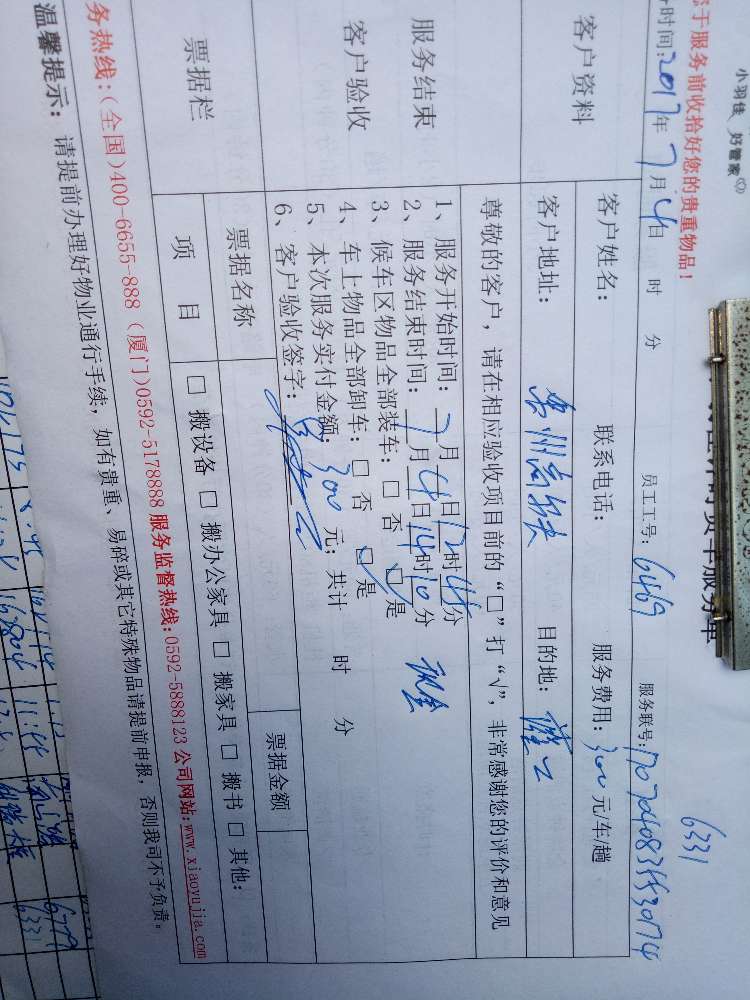 小羽佳 好管家
于服务前收拾好您的贵重物品！
时间：2017年7月4日 时 分 员工工号：6469 服务联号：
6331
客户资料
客户姓名： 联系电话： 服务费用：300元/车/趟
客户地址： 目的地：
尊敬的客户，请在相应验收项目前的“□”打“√”，非常感谢您的评价和意见
服务结束
客户验收
1、服务开始时间：7月4日12时45分
2、服务结束时间：7月4日14时10分 现金
3、候车区物品全部装车：□ 否 □ 是
4、车上物品全部卸车：□ 否 □ 是
5、本次服务实付金额：300元；共计 时 分
6、客户验收签字：
票据栏
票据名称 票据金额
项 目 □ 搬设备 □ 搬办公家具 □ 搬家具 □ 搬书 □ 其他：
务热线：(全国)400-6655-888 (厦门)0592-5178888 服务监督热线：0592-5888123 公司网站：www.xiaoyujia.com
温馨提示：请提前办理好物业通行手续，如有贵重、易碎或其它特殊物品请提前申报，否则我司不予负责。